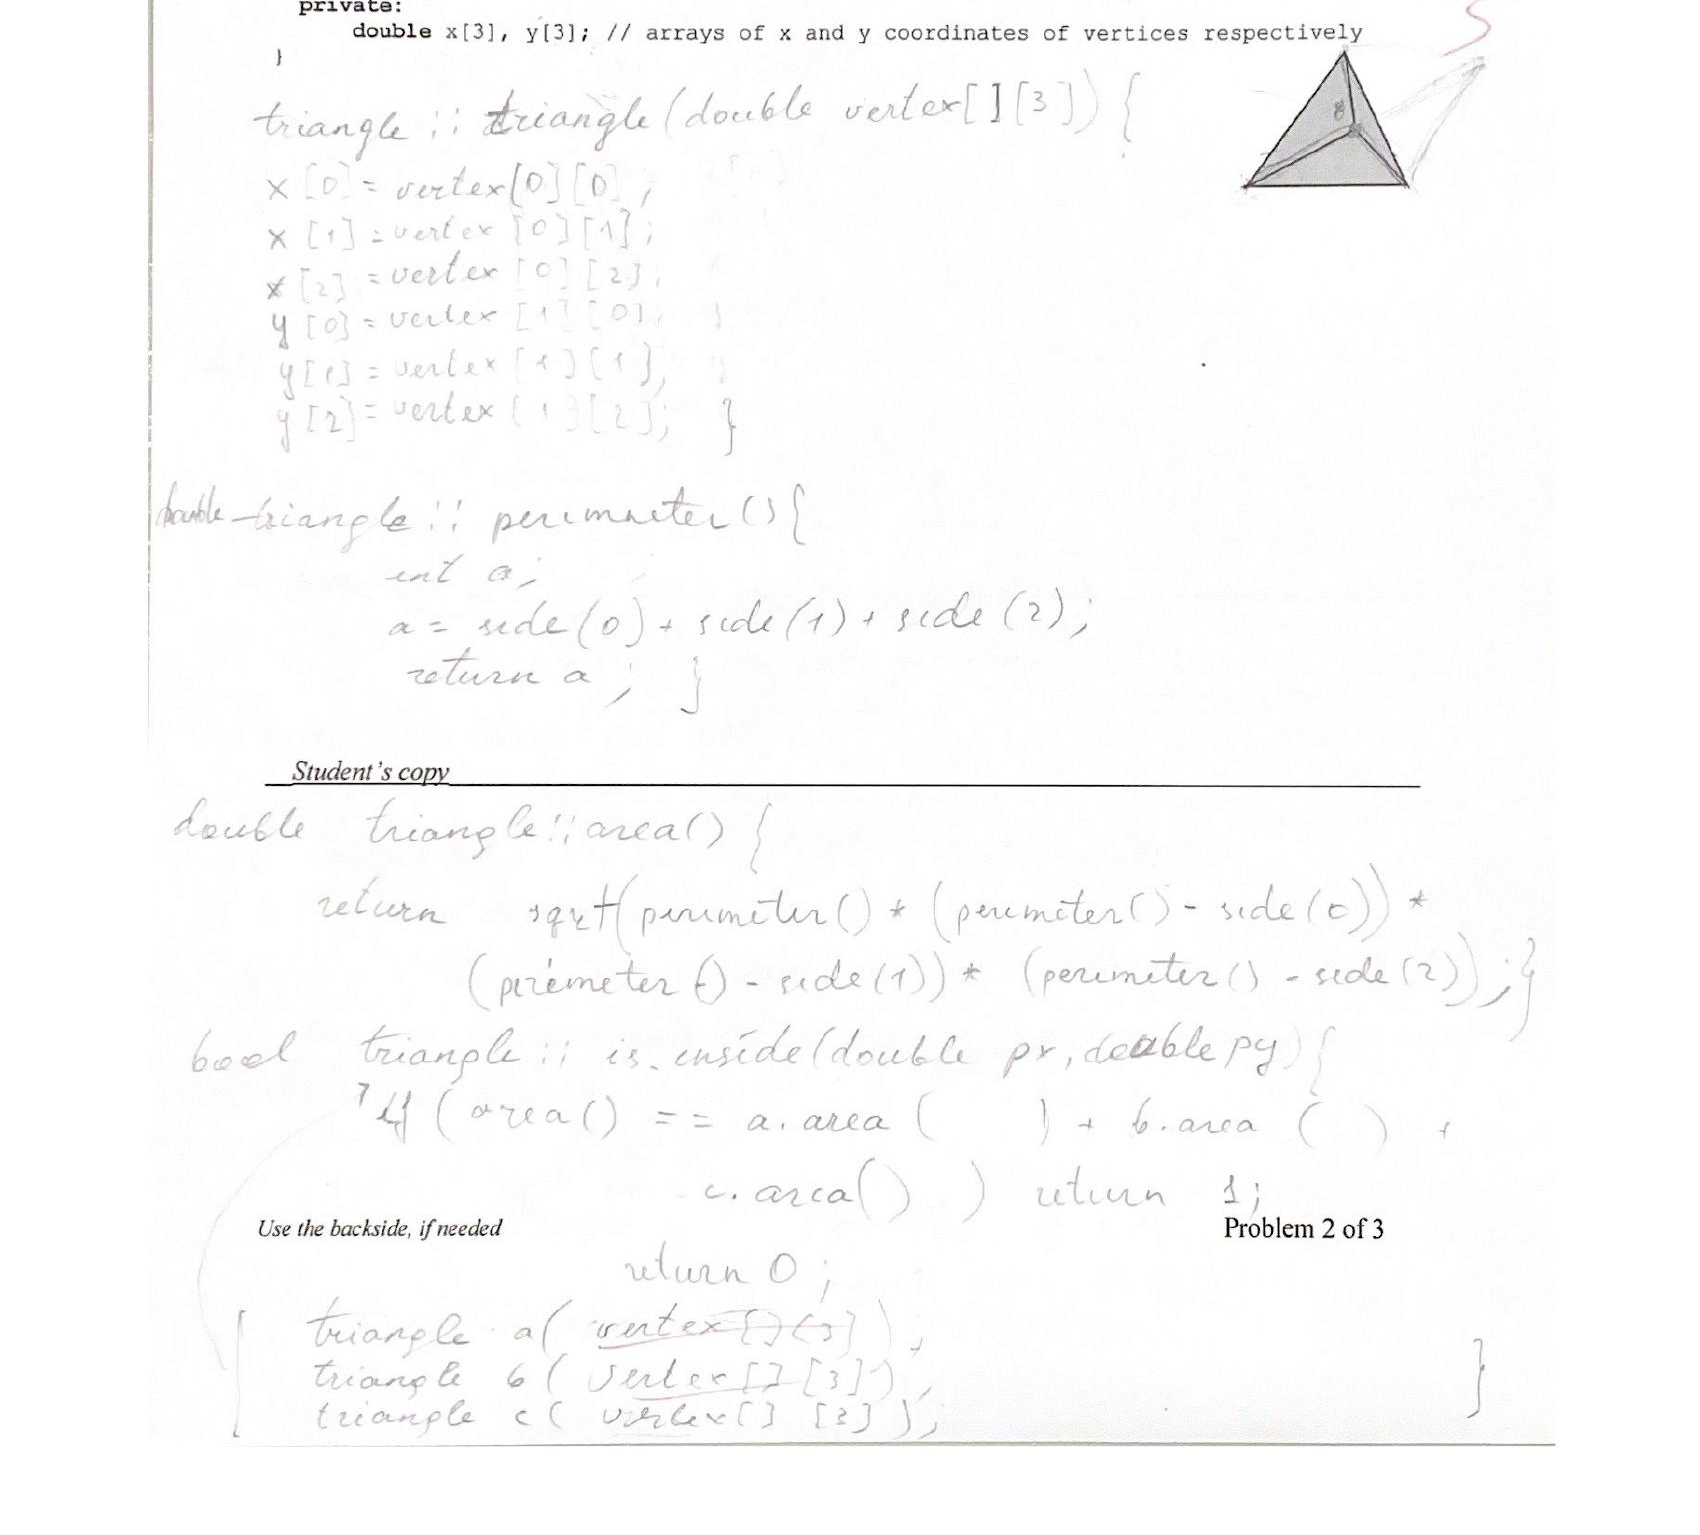 private:
double x[3], y[3]; // arrays of x and y coordinates of vertices respectively
}
triangle :: triangle (double vertex[ ] [3]) {
x [0] = vertex[0] [0] ;
x [1] = vertex [0] [1] ;
x [2] = vertex [0] [2] ;
y [0] = vertex [1] [0] ;
y [1] = vertex [1] [1] ;
y [2] = vertex [1] [2] ; }
double triangle :: perimneter () {
int a ;
a = side (0) + side (1) + side (2) ;
return a ; }
Student's copy
double triangle :: area() {
return sqrt(perimeter () * (perimeter () - side (0)) *
(perimeter () - side (1)) * (perimeter () - side (2)) ; }
bool triangle :: is_inside (double px, double py) {
if ( area () == a. area ( ) + b. area ( ) +
c. area () ) return 1 ;
Use the backside, if needed Problem 2 of 3
return 0 ;
triangle a ( vertex [ ] [3] ) ;
triangle b ( vertex [ ] [3] ) ;
triangle c ( vertex [ ] [3] ) ; }